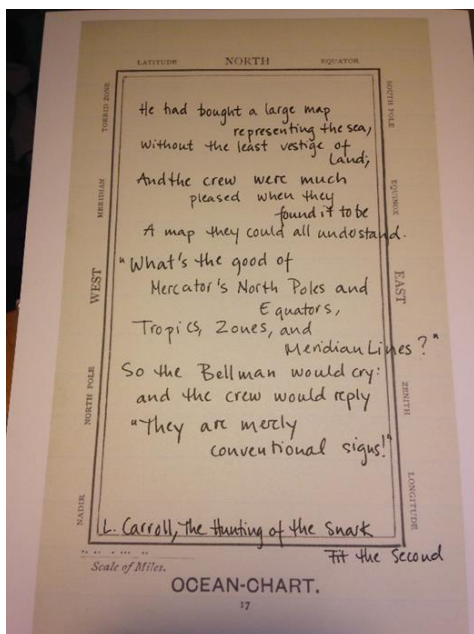 LATITUDE NORTH EQUATOR
TORRID ZONE
MERIDIAN
WEST
NORTH POLE
NADIR
He had bought a large map
representing the sea,
Without the least vestige of
Land;
And the crew were much
pleased when they
found it to be
A map they could all understand.
"What's the good of
Mercator's North Poles and
Equators,
Tropics, Zones, and
Meridian Lines?"
So the Bellman would cry:
and the crew would reply
"They are merely
conventional signs!"
L. Carroll, The Hunting of the Snark
Fit the Second
SOUTH POLE
EQUINOX
EAST
ZENITH
LONGITUDE
Scale of Miles.
OCEAN-CHART.
17